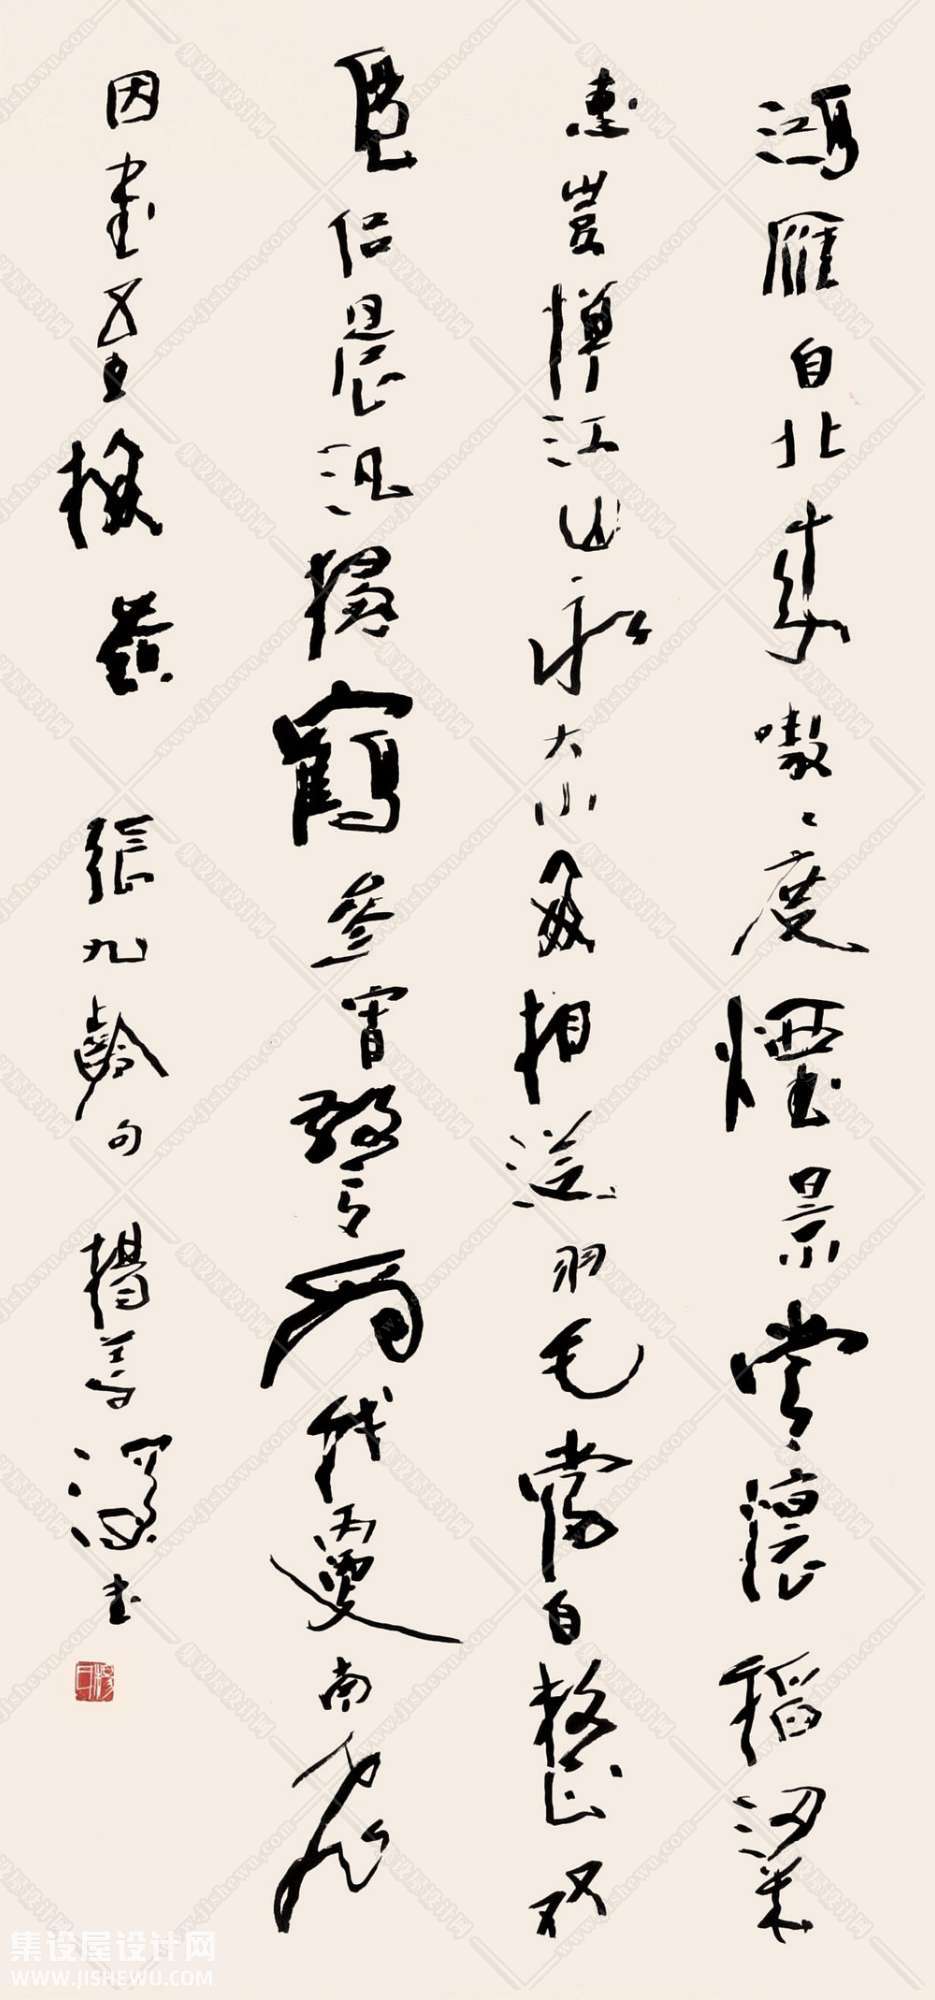 鴻雁自北來嗷〻度煙景常懷稻粱
惠豈憚江山永大小每相從羽毛當自整双
鳧侶晨泛獨鶴參宵警為我更南飛
因書至梅嶺 張九齡句 楊善深書
集设屋设计网
WWW.JISHEWU.COM